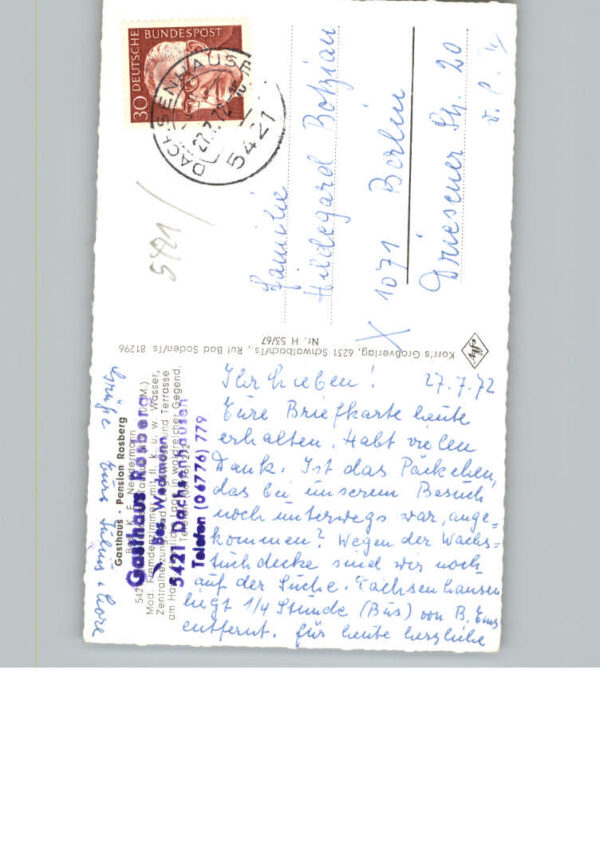 30 DEUTSCHE BUNDESPOST
DACHSENHAUSEN
27.7.72
5421
5421
Familie
Hildegard Botzian
X 1071 Berlin
Driesener Str. 20
v. P. IV
Karr's Großverlag, 6231 Schwalbach/Ts., Ruf Bad Soden/Ts. 81296
Nr. H 53/67
27.7.72
Ihr Lieben!
Eure Briefkarte heute
erhalten. Habt vielen
Dank. Ist das Päckchen,
das bei unserem Besuch
noch unterwegs war, ange-
kommen? Wegen der Wachs-
tuchdecke sind wir noch
auf der Suche. Dachsenhausen
liegt 1/4 Stunde (Bus) von B. Ems
entfernt. Für heute herzliche
Grüße Eure
Gasthaus - Pension Rosberg
Mod. Fremdenzimmer mit fl. k. u. w. Wasser,
Gasthaus Rosberg
Bes. Weckmann
5421 Dachsenhausen
Telefon (06776) 779